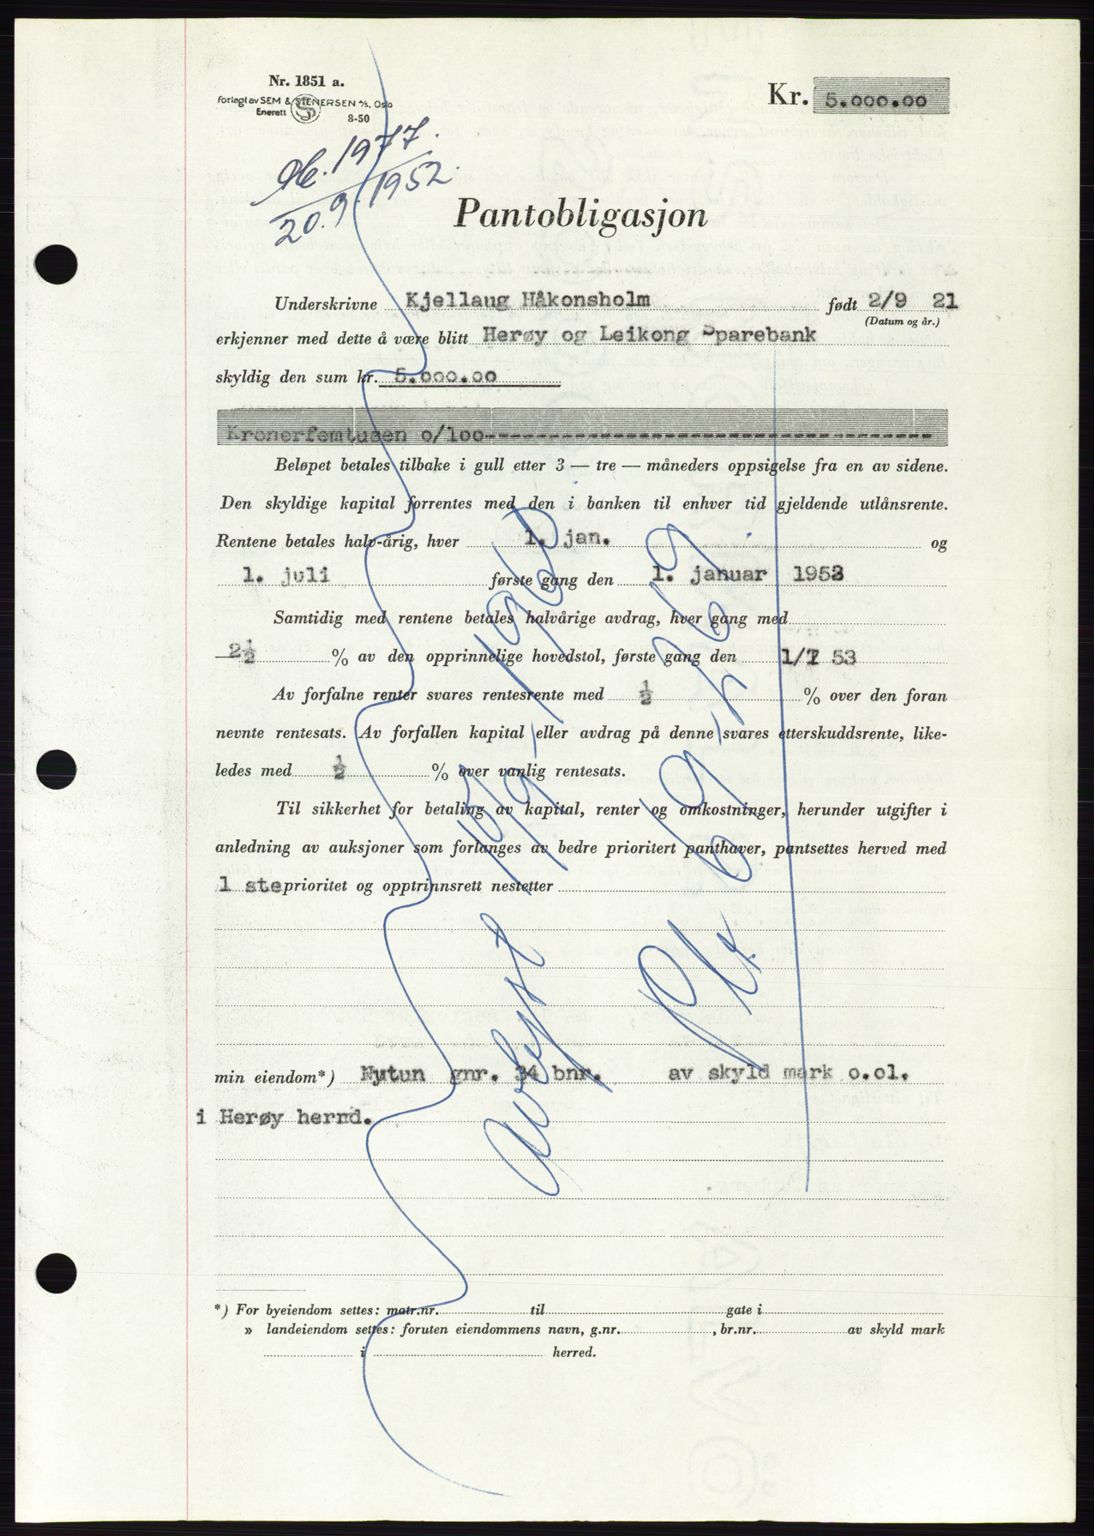 Nr. 1851 a.
Forlagt av SEM & STENERSEN A/S, Oslo
Enerett
8-50
Kr. 5.000.00
1977.
20.9.1952.
Pantobligasjon
Underskrivne Kjellaug Håkonsholm født 2/9 21
(Datum og år.)
erkjenner med dette å være blitt Herøy og Leikong Sparebank
skyldig den sum kr. 5.000.00
Kronerfemtusen o/loo--------------------------------
Beløpet betales tilbake i gull etter 3 — tre — måneders oppsigelse fra en av sidene.
Den skyldige kapital forrentes med den i banken til enhver tid gjeldende utlånsrente.
Rentene betales halv-årig, hver 1. jan. og
1. juli første gang den 1. januar 1953
Samtidig med rentene betales halvårige avdrag, hver gang med
2½ % av den opprinnelige hovedstol, første gang den 1/1 53
Av forfalne renter svares rentesrente med ½ % over den foran
nevnte rentesats. Av forfallen kapital eller avdrag på denne svares etterskuddsrente, like-
ledes med ½ % over vanlig rentesats.
Til sikkerhet for betaling av kapital, renter og omkostninger, herunder utgifter i
anledning av auksjoner som forlanges av bedre prioritert panthaver, pantsettes herved med
1 ste prioritet og opptrinnsrett nestetter
min eiendom*) Nytun gnr. 34 bnr. av skyld mark o.ol.
i Herøy herrd.
Avlyst
*) For byeiendom settes: matr.nr. til gate i
» landeiendom settes: foruten eiendommens navn, g.nr. , br.nr. av skyld mark
i herred.